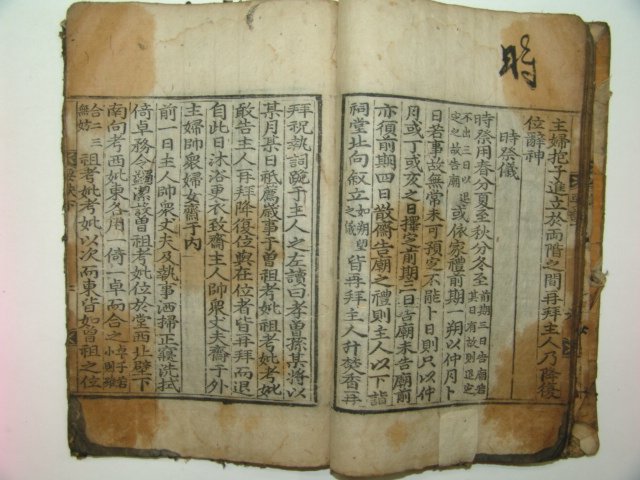 時
主婦抱子進立於兩階之間再拜主人乃降復
位辭神
時祭儀
時祭用春分夏至秋分冬至前期三日告廟若
其日有故則退定
不出三日以
定之故告廟或依家禮前期一朔以仲月卜
日若事故無常未可預定不能卜日則只以仲
月或丁或亥之日擇定前期三日告廟未告廟前
亦須前期四日散齋告廟之禮則主人以下詣
祠堂北向叙立如朔望
之儀皆再拜主人升焚香再
拜祝執詞跪于主人之左讀曰孝曾孫某將以
某月某日祇薦歲事于曾祖考妣祖考妣考妣
敢告主人再拜降復位與在位者皆再拜而退
自此日沐浴更衣致齋主人帥衆丈夫齋于外
主婦帥衆婦女齋于內
前一日主人帥衆丈夫及執事洒掃正寢洗拭
倚卓務令蠲潔設曾祖考妣位於堂西北壁下
南向考西妣東各用一倚一卓而合之
合二三
祖考妣考妣以次而東皆如曾祖之位